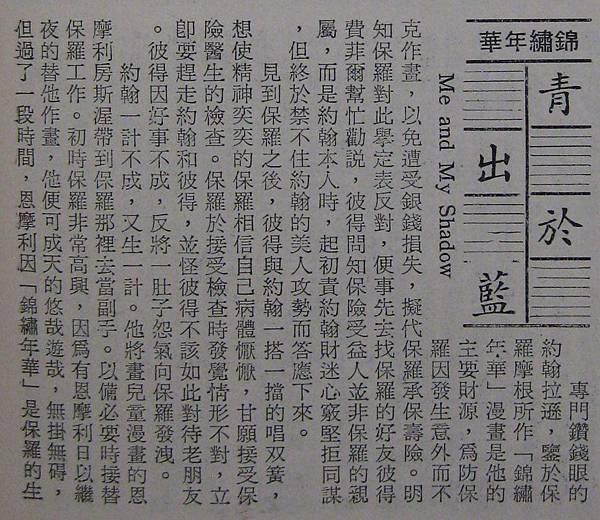 錦繡年華
青出於藍
Me and My Shadow
專門鑽錢眼的
約翰拉遜，鑒於保
羅摩根所作「錦繡
年華」漫畫是他的
主要財源，爲防保
羅因發生意外而不
克作畫，以免遭受銀錢損失，擬代保羅承保壽險。明
知保羅對此舉定表反對，便事先去找保羅的好友彼得
費菲爾幫忙勸說，彼得問知保險受益人並非保羅的親
屬，而是約翰本人時，起初責約翰財迷心竅堅拒同謀
，但終於禁不住約翰的美人攻勢而答應下來。
見到保羅之後，彼得與約翰一搭一擋的唱双簧，
想使精神奕奕的保羅相信自己病體懨懨，甘願接受保
險醫生的檢查。保羅於接受檢查時發覺情形不對，立
卽要趕走約翰和彼得，並怪彼得不該如此對待老朋友
。彼得因好事不成，反將一肚子怨氣向保羅發洩。
約翰一計不成，又生一計。他將畫兒童漫畫的恩
摩利房斯渥帶到保羅那裡去當副手。以備必要時接替
保羅工作。初時保羅非常高興，因爲有恩摩利日以繼
夜的替他作畫，他便可成天的悠哉遊哉，無掛無碍，
但過了一段時間，恩摩利因「錦繡年華」是保羅的生